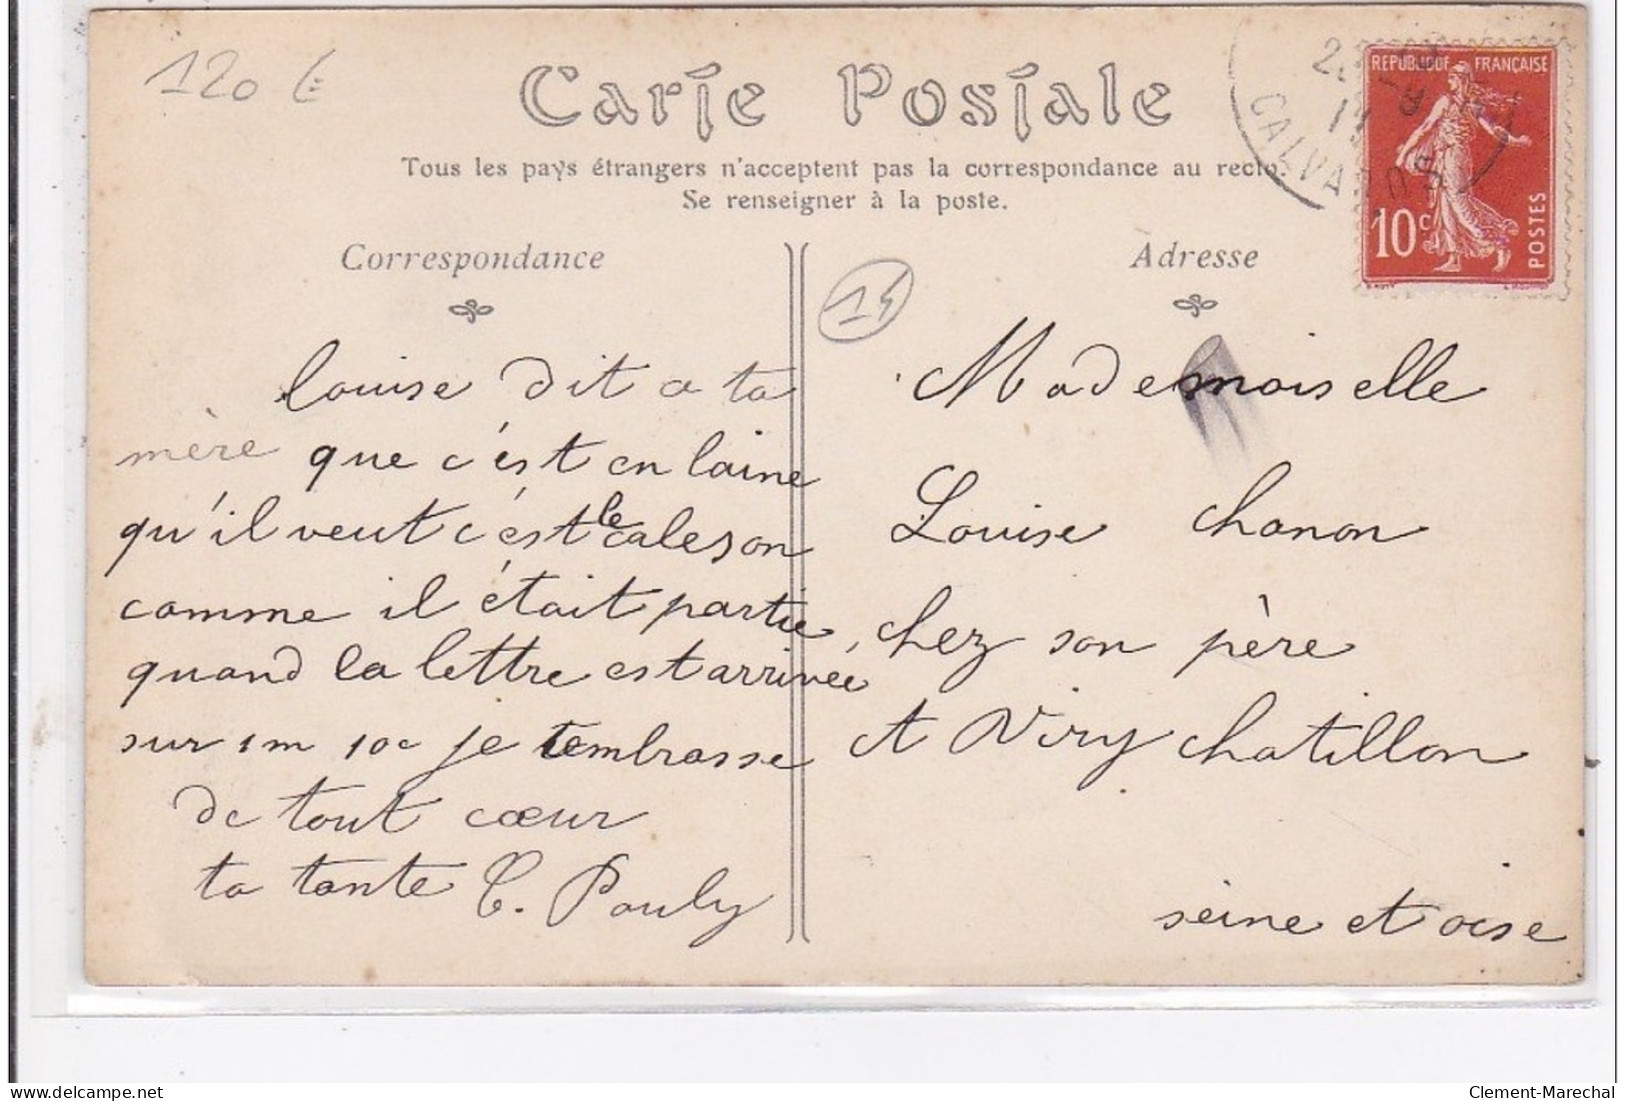 120 €
Carte Postale
Tous les pays étrangers n'acceptent pas la correspondance au recto.
Se renseigner à la poste.
Correspondance
Adresse
REPUBLIQUE FRANÇAISE
10c
POSTES
CALVADOS
14
Louise dit a ta
mère que c'est en laine
qu'il veut c'est le caleson
comme il était partie
quand la lettre est arrivée
sur 1m 10c je tembrasse
de tout cœur
ta tante C. Pouly
Mademoiselle
Louise Chanon
chez son père
A Viry chatillon
seine et oise
Clement-Marechal